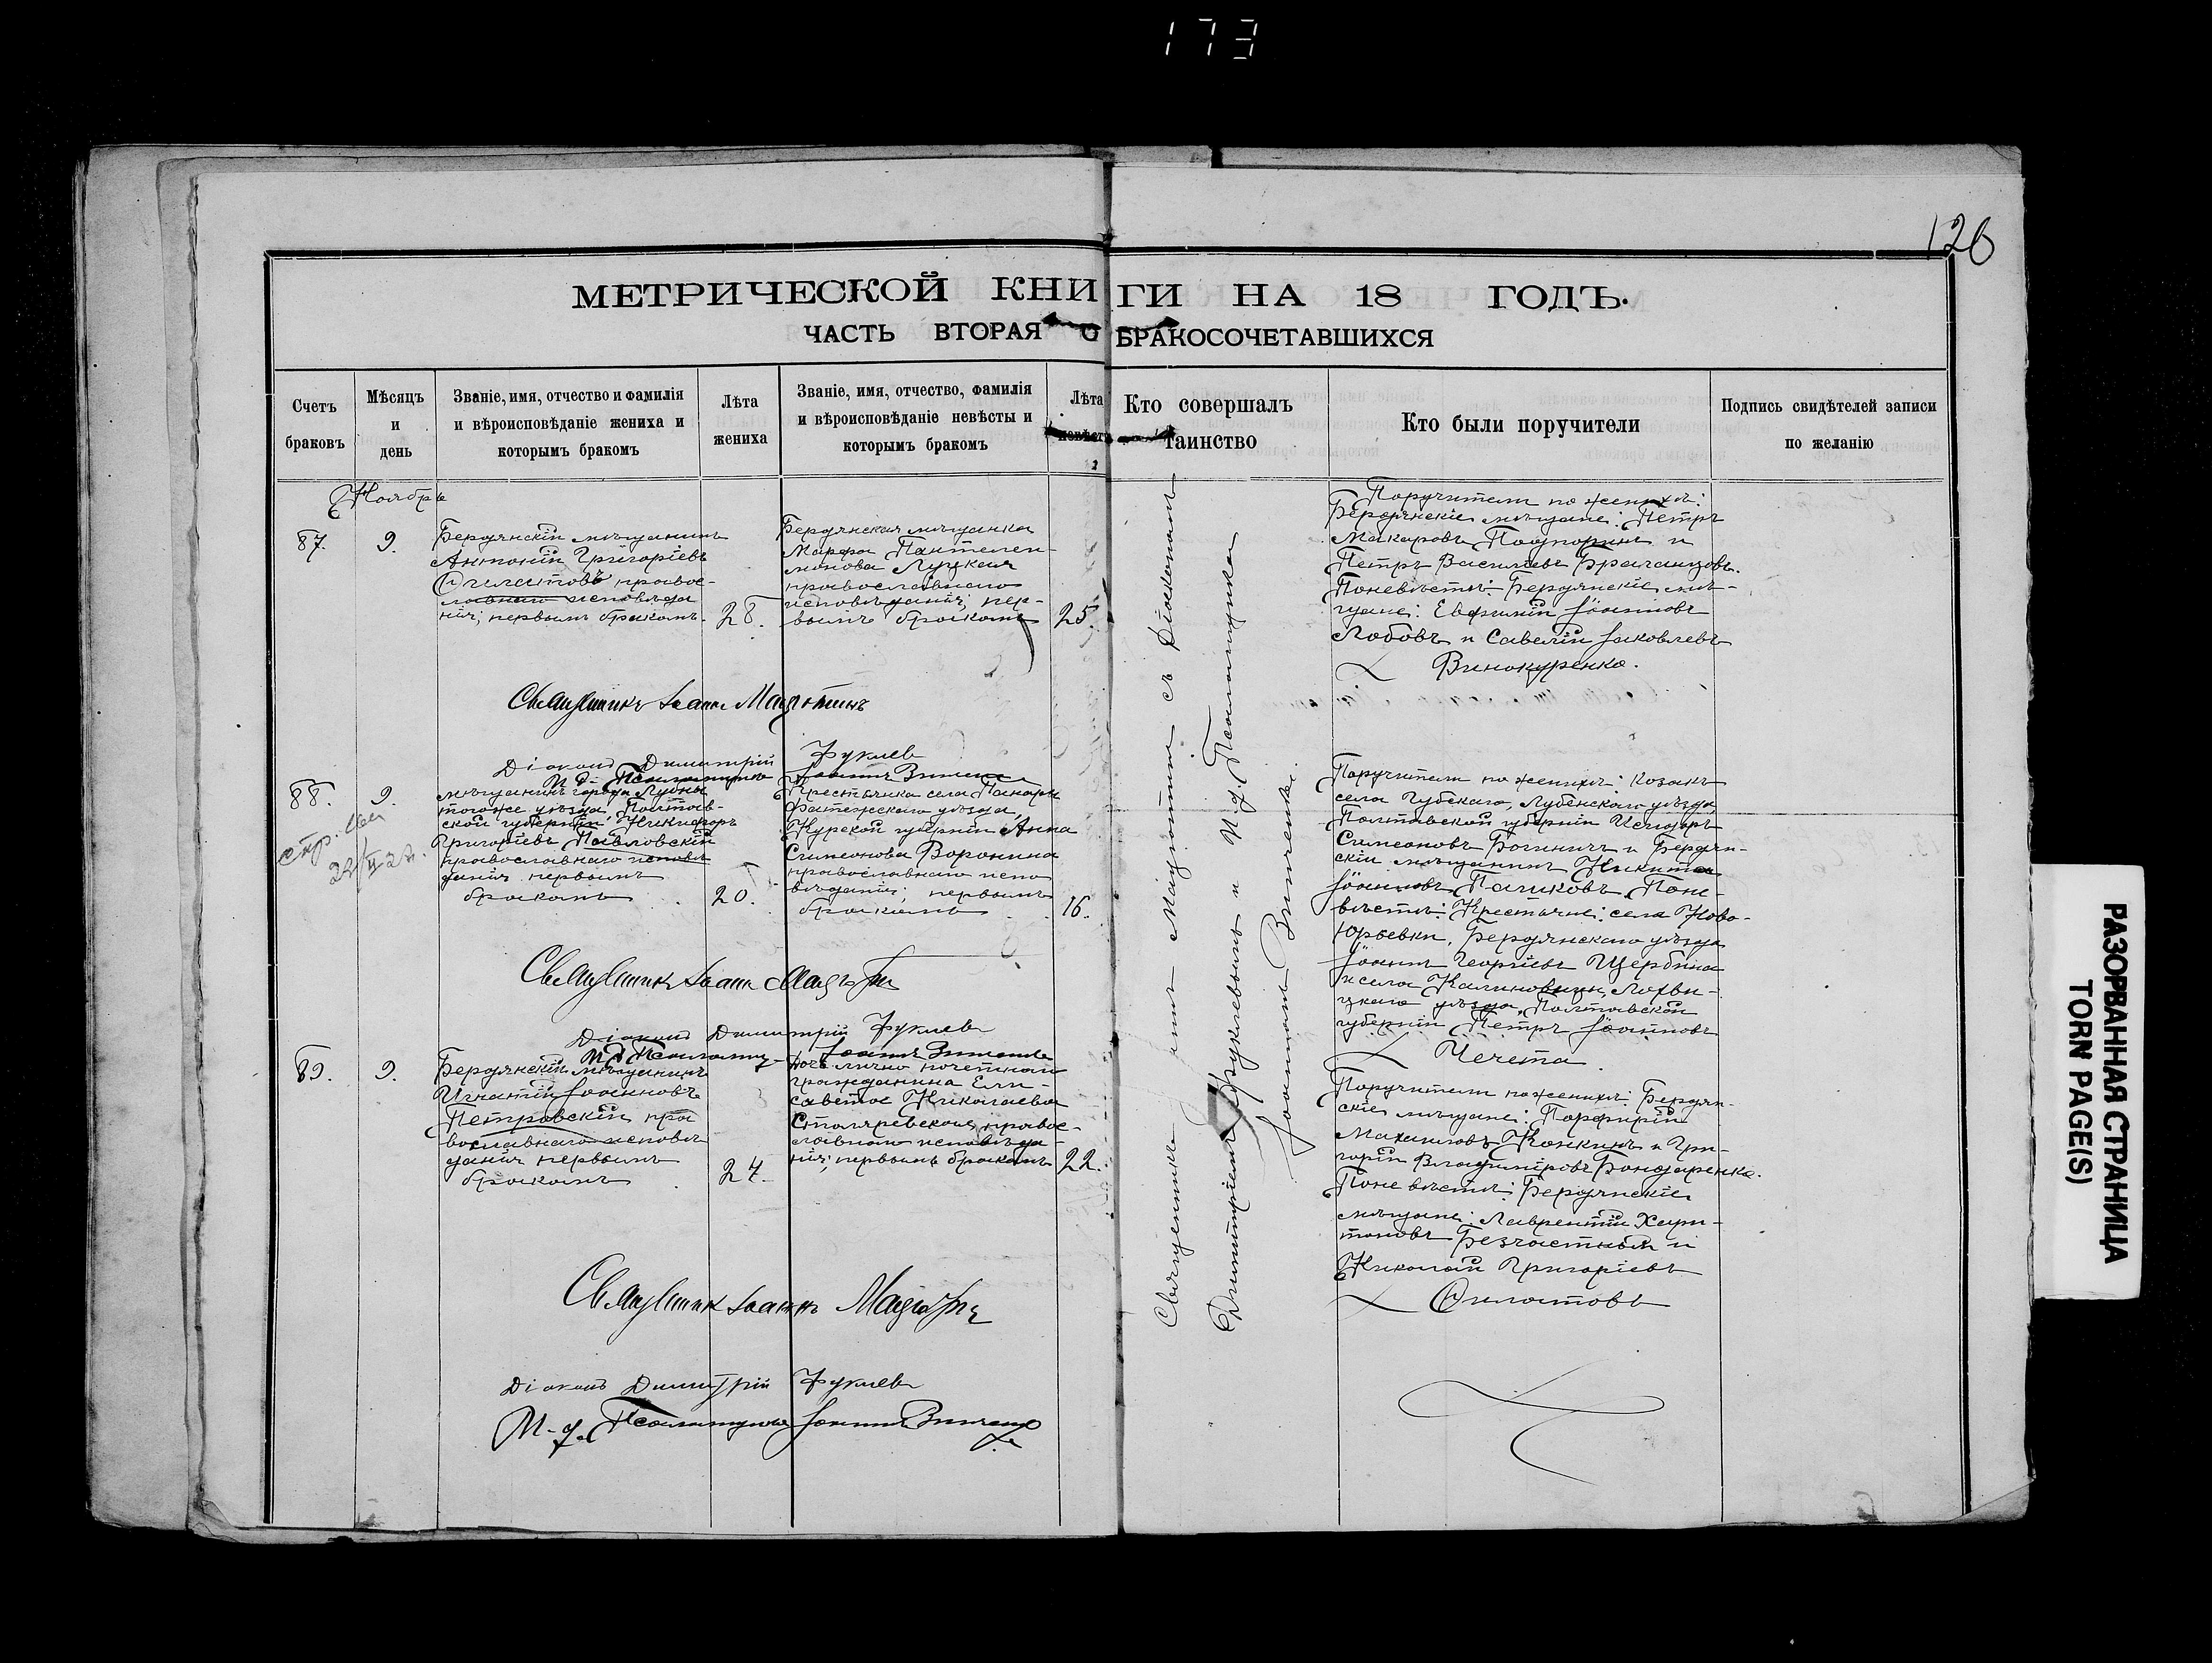 173
126
МЕТРИЧЕСКОЙ КНИГИ НА 18 ГОДЪ.
ЧАСТЬ ВТОРАЯ О БРАКОСОЧЕТАВШИХСЯ
Счетъ браковъ
Мѣсяцъ и день
Званіе, имя, отчество и фамилія и вѣроисповѣданіе жениха и которымъ бракомъ
Лѣта жениха
Званіе, имя, отчество, фамилія и вѣроисповѣданіе невѣсты и которымъ бракомъ
Лѣта невѣсты
Кто совершалъ таинство
Кто были поручители
Подпись свидѣтелей записи по желанію
Ноябрь
87.
9.
Бердянскій мѣщанинъ
Антоній Григоріевъ
Филатовъ правос-
лавнаго исповѣда
нія; первымъ бракомъ.
28.
Бердянская мѣщанка
Марфа Пантелеи-
монова Луцкая
православнаго
исповѣданія; пер-
вымъ бракомъ
25.
Поручители по женихѣ:
Бердянскіе мѣщане: Петръ
Макаровъ Подпоринъ и
Петръ Васильевъ Браганцовъ.
По невѣстѣ: Бердянскіе мѣ-
щане: Евфимій Іоанновъ
Лобовъ и Савелій Іаковлевъ
Винокуренко.
Священникъ Іоаннъ Мацютинъ
Діаконъ Димитрій Фуклевъ
И. д. Псаломщика Іоаннъ Зинченко
88.
9.
мѣщанинъ города Лубны
того же уѣзда, Полтав-
ской губерніи, Никифоръ
Григоріевъ Павловскій
православнаго исповѣ
данія первымъ
бракомъ
20.
Крестьянка села Панары
Фатежскаго уѣзда,
Курской губерніи Анна
Симеонова Воронина
православнаго испо
вѣданія; первымъ
бракомъ
16.
Поручители по женихѣ: козакъ
села Губскаго, Лубенскаго уѣзда
Полтавской губерніи Исидоръ
Симеоновъ Богиничъ и Бердян-
скій мѣщанинъ Никита
Іоанновъ Пачиковъ. По не-
вѣстѣ: Крестьяне: села Ново-
Юрьевки, Бердянскаго уѣзда
Іоаннъ Георгіевъ Щербина
и села Калиновицы, Лохви-
цкаго уѣзда, Полтавской
губерніи Петръ Іоанновъ
Чечета.
Священникъ Іоаннъ
Діаконъ Димитрій Фуклевъ
И. д. Псаломщ. Іоаннъ Зинченко
89.
9.
Бердянскій мѣщанинъ
Игнатій Іоанновъ
Петровскій, пра
вославнаго исповѣ
данія первымъ
бракомъ
24.
дочь лично почетнаго
гражданина Ели-
савета Николаева
Столяревская, правос-
лавнаго исповѣда-
нія; первымъ бракомъ
22.
Поручители по женихѣ Бердян-
скіе мѣщане: Порфирій
Михаиловъ Конкинъ и Гри-
горій Владиміровъ Бондаренко.
По невѣстѣ: Бердянскіе
мѣщане: Лаврентій Хари-
тоновъ Безчастный и
Николай Григоріевъ
Филатовъ
Священникъ Іоаннъ Мацютинъ
Діаконъ Димитрій Фуклевъ
И. д. Псаломщика Іоаннъ Зинченко
Священникъ Іоаннъ Мацютинъ съ Діакономъ
Димитріемъ Фуклевымъ и И. д. Псаломщика
Іоанномъ Зинченко.
РАЗОРВАННАЯ СТРАНИЦА
TORN PAGE(S)